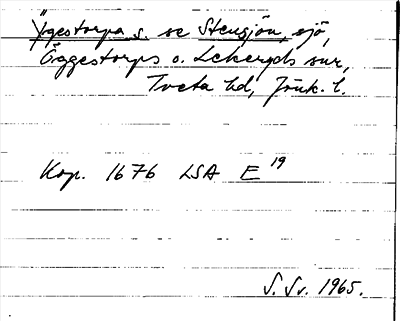 Ÿgestorpa s. se Stensjön, sjö,
Öggestorps o. Lekeryds snr,
Tveta hd, Jönk. l.
Kop. 1676 LSA E 19
S. Sv. 1965.